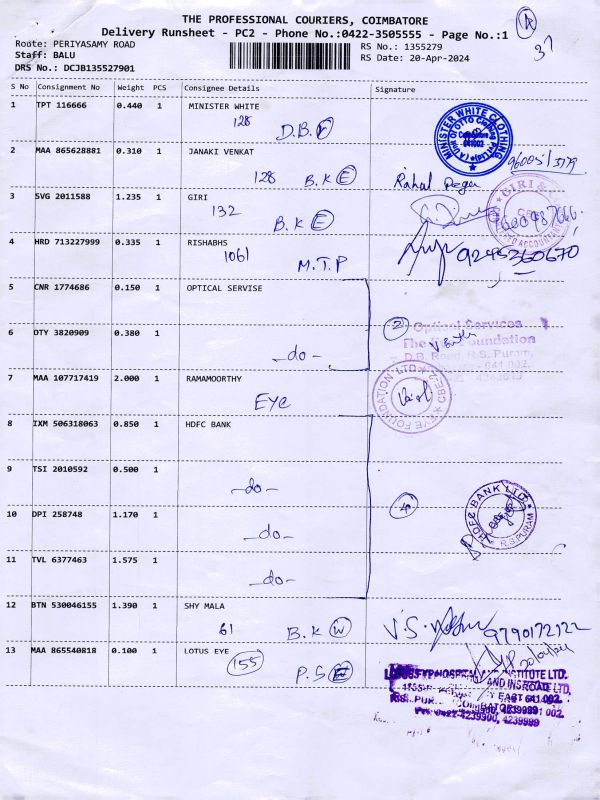 THE PROFESSIONAL COURIERS, COIMBATORE
Delivery Runsheet - PC2 - Phone No.:0422-3505555 - Page No.:1
37
Route: PERIYASAMY ROAD
RS No.: 1355279
Staff: BALU
RS Date: 20-Apr-2024
DRS No.: DCJB135527901
S No Consignment No Weight PCS Consignee Details Signature
1 TPT 116666 0.440 1 MINISTER WHITE
128 D.B.
MINISTER WHITE CLOTHING
2 MAA 865628881 0.310 1 JANAKI VENKAT
128 B.K E
Rahul
3 SVG 2011588 1.235 1 GIRI
132 B.K E
GIRI
4 HRD 713227999 0.335 1 RISHABHS
1061 M.T.P
9245360670
5 CNR 1774686 0.150 1 OPTICAL SERVISE
2
Optical Services
6 DTY 3820909 0.380 1
-do-
The Eye Foundation
D.B. Road, R.S. Puram,
7 MAA 107717419 2.000 1 RAMAMOORTHY
EYE
EYE FOUNDATION LTD CBE-2
8 IXM 506318063 0.850 1 HDFC BANK
9 TSI 2010592 0.500 1
-do-
4
HDFC BANK LTD.
R.S.PURAM
10 DPI 258748 1.170 1
-do-
11 TVL 6377463 1.575 1
-do-
12 BTN 530046155 1.390 1 SHY MALA
61 B.K W
V.S.
9790172122
13 MAA 865540818 0.100 1 LOTUS EYE
155 P.S
LOTUS EYE HOSPITAL AND INSTITUTE LTD.
EAST 641 002.
COIMBATORE
0422-4239900, 4239999